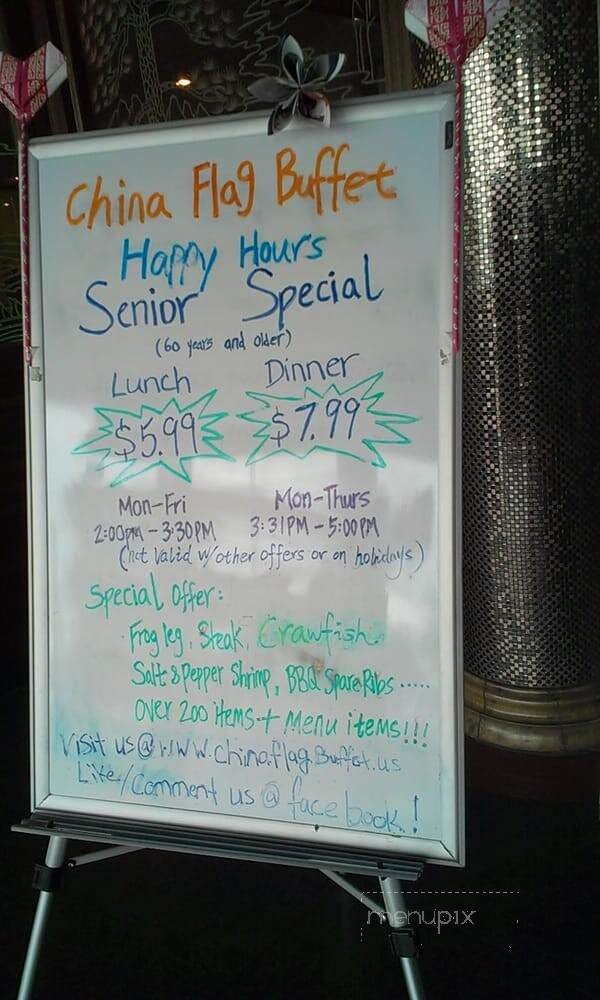 China Flag Buffet
Happy Hours
Senior Special
(60 years and older)
Lunch Dinner
$5.99 $7.99
Mon-Fri Mon-Thurs
2:00PM-3:30PM 3:31PM-5:00PM
(not valid w/other offers or on holidays)
Special Offer:
Frog leg, Steak, Crawfish,
Salt & Pepper Shrimp, BBQ Spare Ribs .....
Over 200 items + Menu items!!!
Visit us @ www.chinaflagBuffet.us
Like/Comment us @ facebook!
menupix